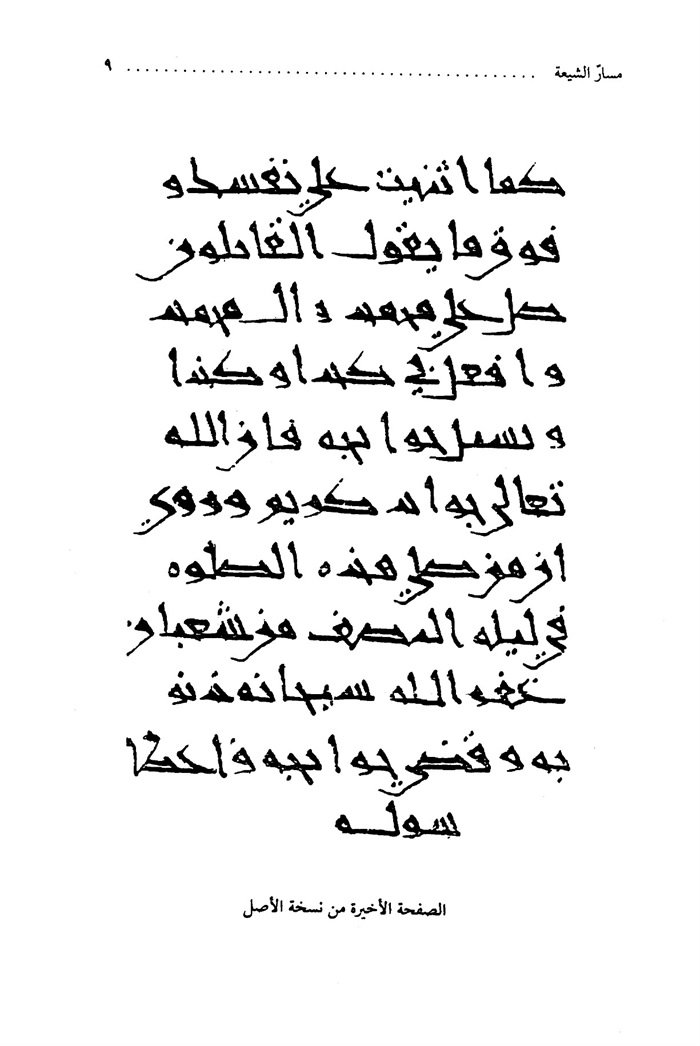 مسارّ الشيعة ........................................ ٩
كما اثنيت على نفسك و
فوق ما يقول القائلون
صل على محمد و ال محمد
و افعل في كذا و كذا
و يسئل حوايجه فان الله
تعالى جواد كريم و روي
ان من صلى هذه الصلوه
في ليله النصف من شعبان
غفر الله سبحانه ذنو
به و قضى حوايجه و اعطا
سوله
الصفحة الأخيرة من نسخة الأصل